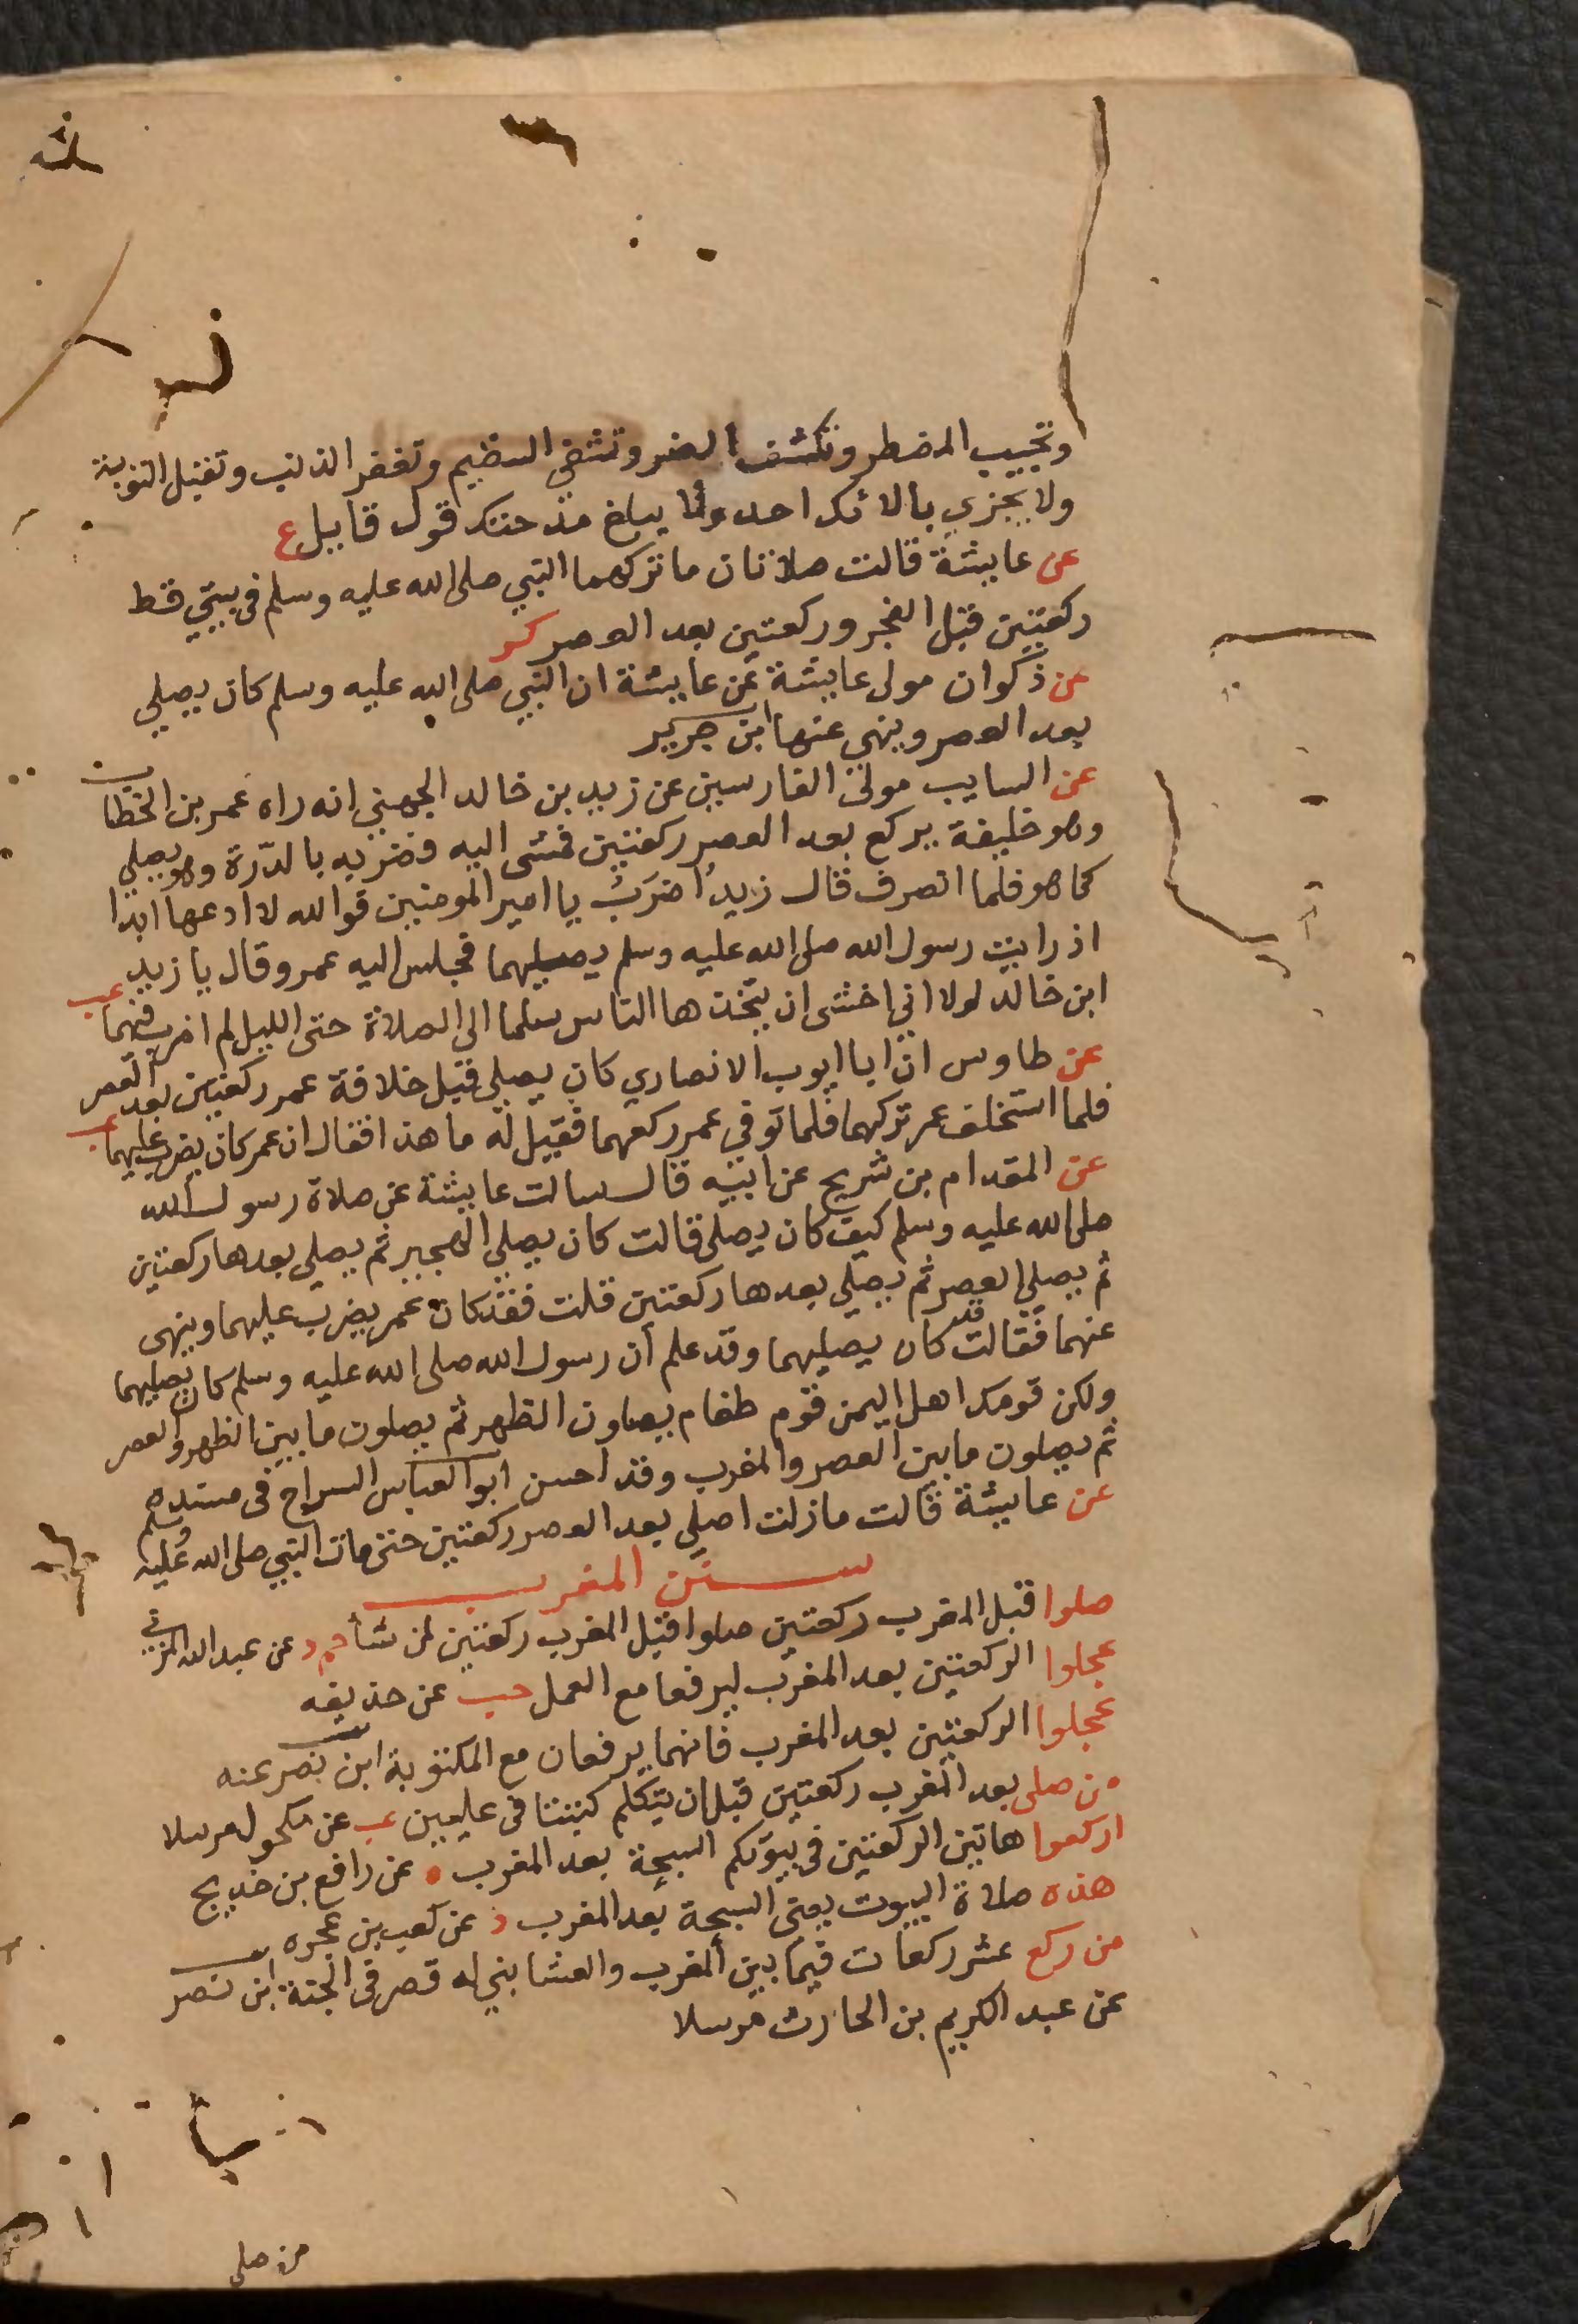 وتجيب المضطر وتكشف الضر وتشفي السقيم وتغفر الذنب وتقبل التوبة
ولا يجزي بالائك احد ولا يبلغ مدحتك قول قايل ع
عن عايشة قالت صلاتان ما تركهما النبي صلى الله عليه وسلم في بيتي قط
ركعتين قبل الفجر وركعتين بعد العصر كر
عن ذكوان مولى عايشة عن عايشة ان النبي صلى الله عليه وسلم كان يصلي
بعد العصر وينهي عنها ابن جرير
عن السايب مولى الفارسين عن زيد بن خالد الجهني انه راه عمر بن الخطاب
وهو خليفة يركع بعد العصر ركعتين فمشى اليه فضربه بالدرة وهو يصلي
كما هو فلما انصرف قال زيد اضرب يا امير المومنين فوالله لا ادعها ابدا
اذ رايت رسول الله صلى الله عليه وسلم يصليهما فجلس اليه عمر وقال يا زيد
ابن خالد لولا اني اخشى ان يتخذها الناس سلما الى الصلاة حتى الليل لم اضرب فيهما عب
عن طاوس ان ابا ايوب الانصاري كان يصلي قبل خلافة عمر ركعتين بعد العصر
فلما استخلف عمر تركهما فلما توفي عمر ركعهما فقيل له ما هذا فقال ان عمر كان يضرب عليهما عب
عن المقدام بن شريح عن ابيه قال سالت عايشة عن صلاة رسول الله
صلى الله عليه وسلم كيف كان يصلي قالت كان يصلي الهجير ثم يصلي بعدها ركعتين
ثم يصلي العصر ثم يصلي بعدها ركعتين قلت فقد كان عمر يضرب عليهما وينهى
عنهما فقالت قد كان يصليهما وقد علم أن رسول الله صلى الله عليه وسلم كان يصليهما
ولكن قومك اهل اليمن قوم طغام يصلون الظهر ثم يصلون ما بين الظهر والعصر
ثم يصلون ما بين العصر والمغرب وقد احسن ابو العباس السراج في مسنده
عن عايشة قالت ما زلت اصلي بعد العصر ركعتين حتى مات النبي صلى الله عليه وسلم
سنن المغرب
صلوا قبل المغرب ركعتين صلوا قبل المغرب ركعتين لمن شأ حم د عن عبد الله المزني
عجلوا الركعتين بعد المغرب ليرفعا مع العمل حب عن حذيفه
عجلوا الركعتين بعد المغرب فانهما يرفعان مع المكتوبة ابن نصر عنه
من صلى بعد المغرب ركعتين قبل ان يتكلم كتبتا في عليين عب عن مكحول مرسلا
اركعوا هاتين الركعتين في بيوتكم السبحة بعد المغرب ه عن رافع بن خديج
هذه صلاة البيوت يعني السبحة بعد المغرب د عن كعب بن عجره
من ركع عشر ركعات فيما بين المغرب والعشا بني له قصر في الجنة ابن نصر
عن عبد الكريم بن الحارث مرسلا
من صلى